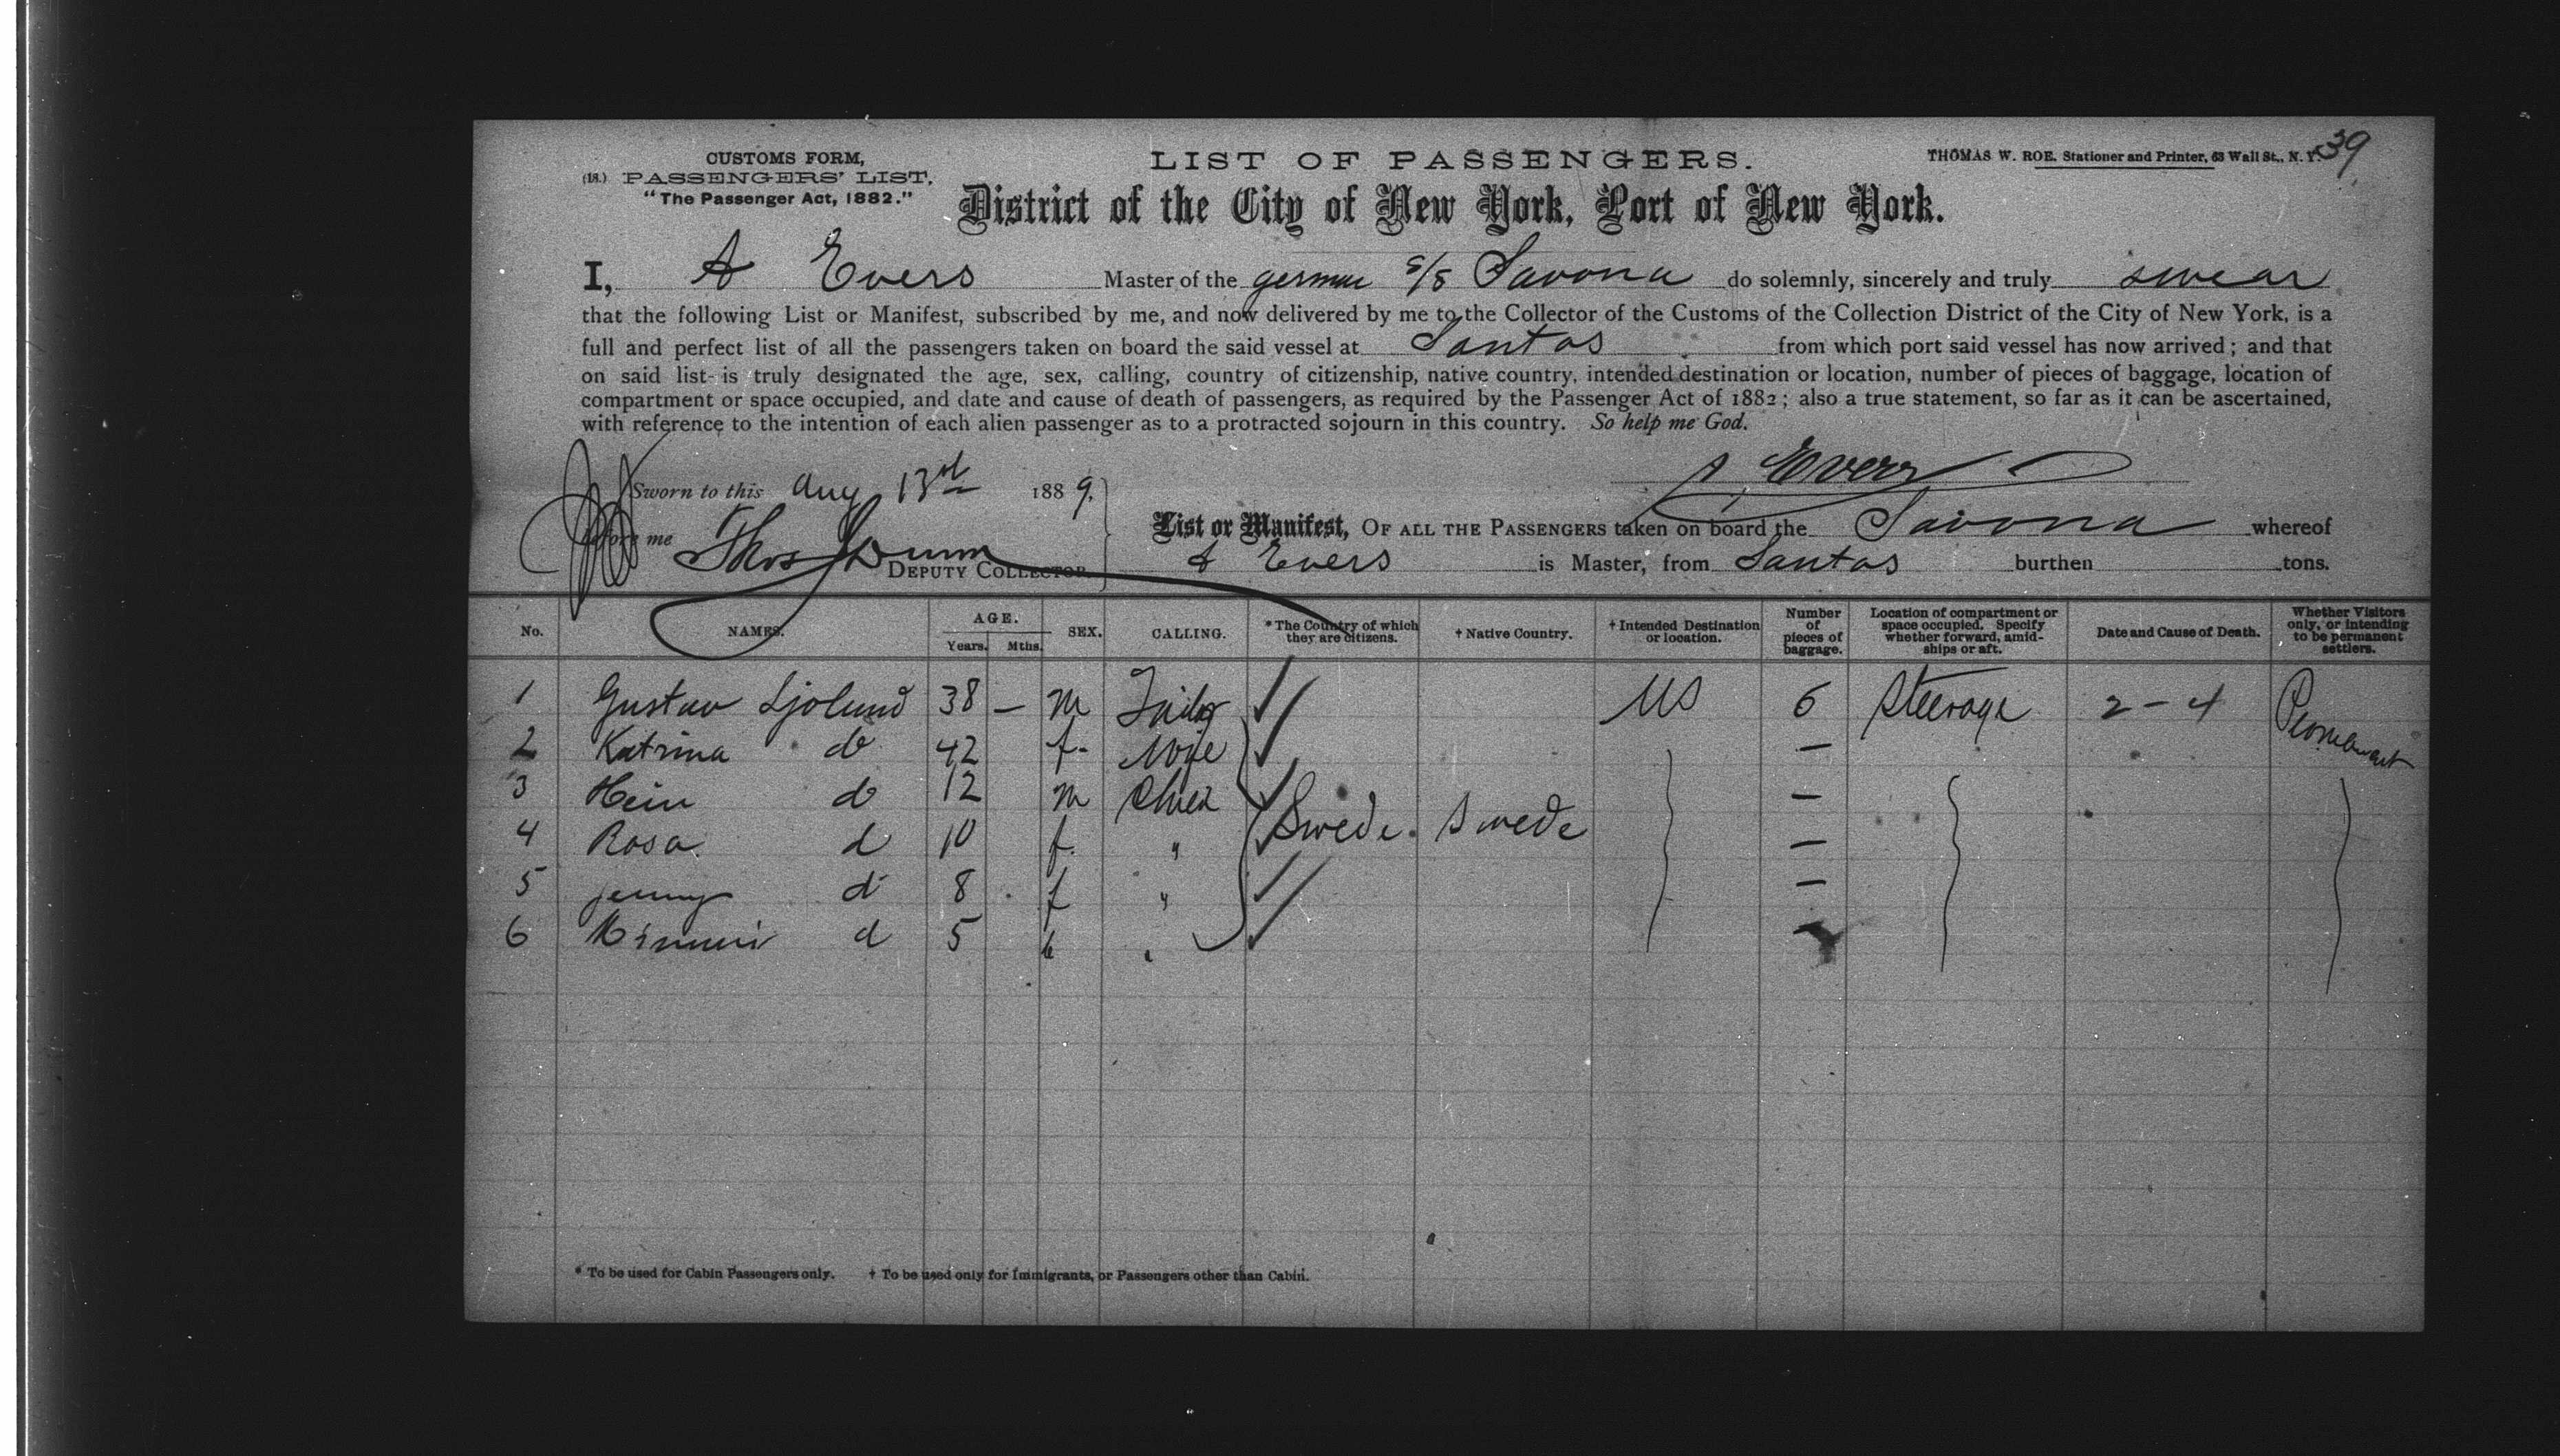 39
CUSTOMS FORM,
(18.) PASSENGERS' LIST,
"The Passenger Act, 1882."
LIST OF PASSENGERS.
THOMAS W. ROE, Stationer and Printer, 63 Wall St., N. Y.
District of the City of New York, Port of New York.
I, A Evers Master of the german s/s Savona do solemnly, sincerely and truly swear
that the following List or Manifest, subscribed by me, and now delivered by me to the Collector of the Customs of the Collection District of the City of New York, is a
full and perfect list of all the passengers taken on board the said vessel at Santos from which port said vessel has now arrived; and that
on said list is truly designated the age, sex, calling, country of citizenship, native country, intended destination or location, number of pieces of baggage, location of
compartment or space occupied, and date and cause of death of passengers, as required by the Passenger Act of 1882; also a true statement, so far as it can be ascertained,
with reference to the intention of each alien passenger as to a protracted sojourn in this country. So help me God.
A Evers
Sworn to this Aug 13 1889,
before me Thos Dunn
DEPUTY COLLECTOR
List or Manifest, OF ALL THE PASSENGERS taken on board the Savona whereof
A Evers is Master, from Santos burthen tons.
No. NAMES. AGE. Years. Mths. SEX. CALLING. * The Country of which they are citizens. † Native Country. † Intended Destination or location. Number of pieces of baggage. Location of compartment or space occupied. Specify whether forward, amidships or aft. Date and Cause of Death. Whether Visitors only, or intending to be permanent settlers.
1 Gustav Sjolund 38 — m US 6 Steerage 2 - 4
2 Katrina do 42 f. Wife —
3 Hein do 12 m —
4 Rosa d 10 f. " Swede Swede —
5 Jenny d 8 f " —
6 d 5 " —
* To be used for Cabin Passengers only. † To be used only for Immigrants, or Passengers other than Cabin.